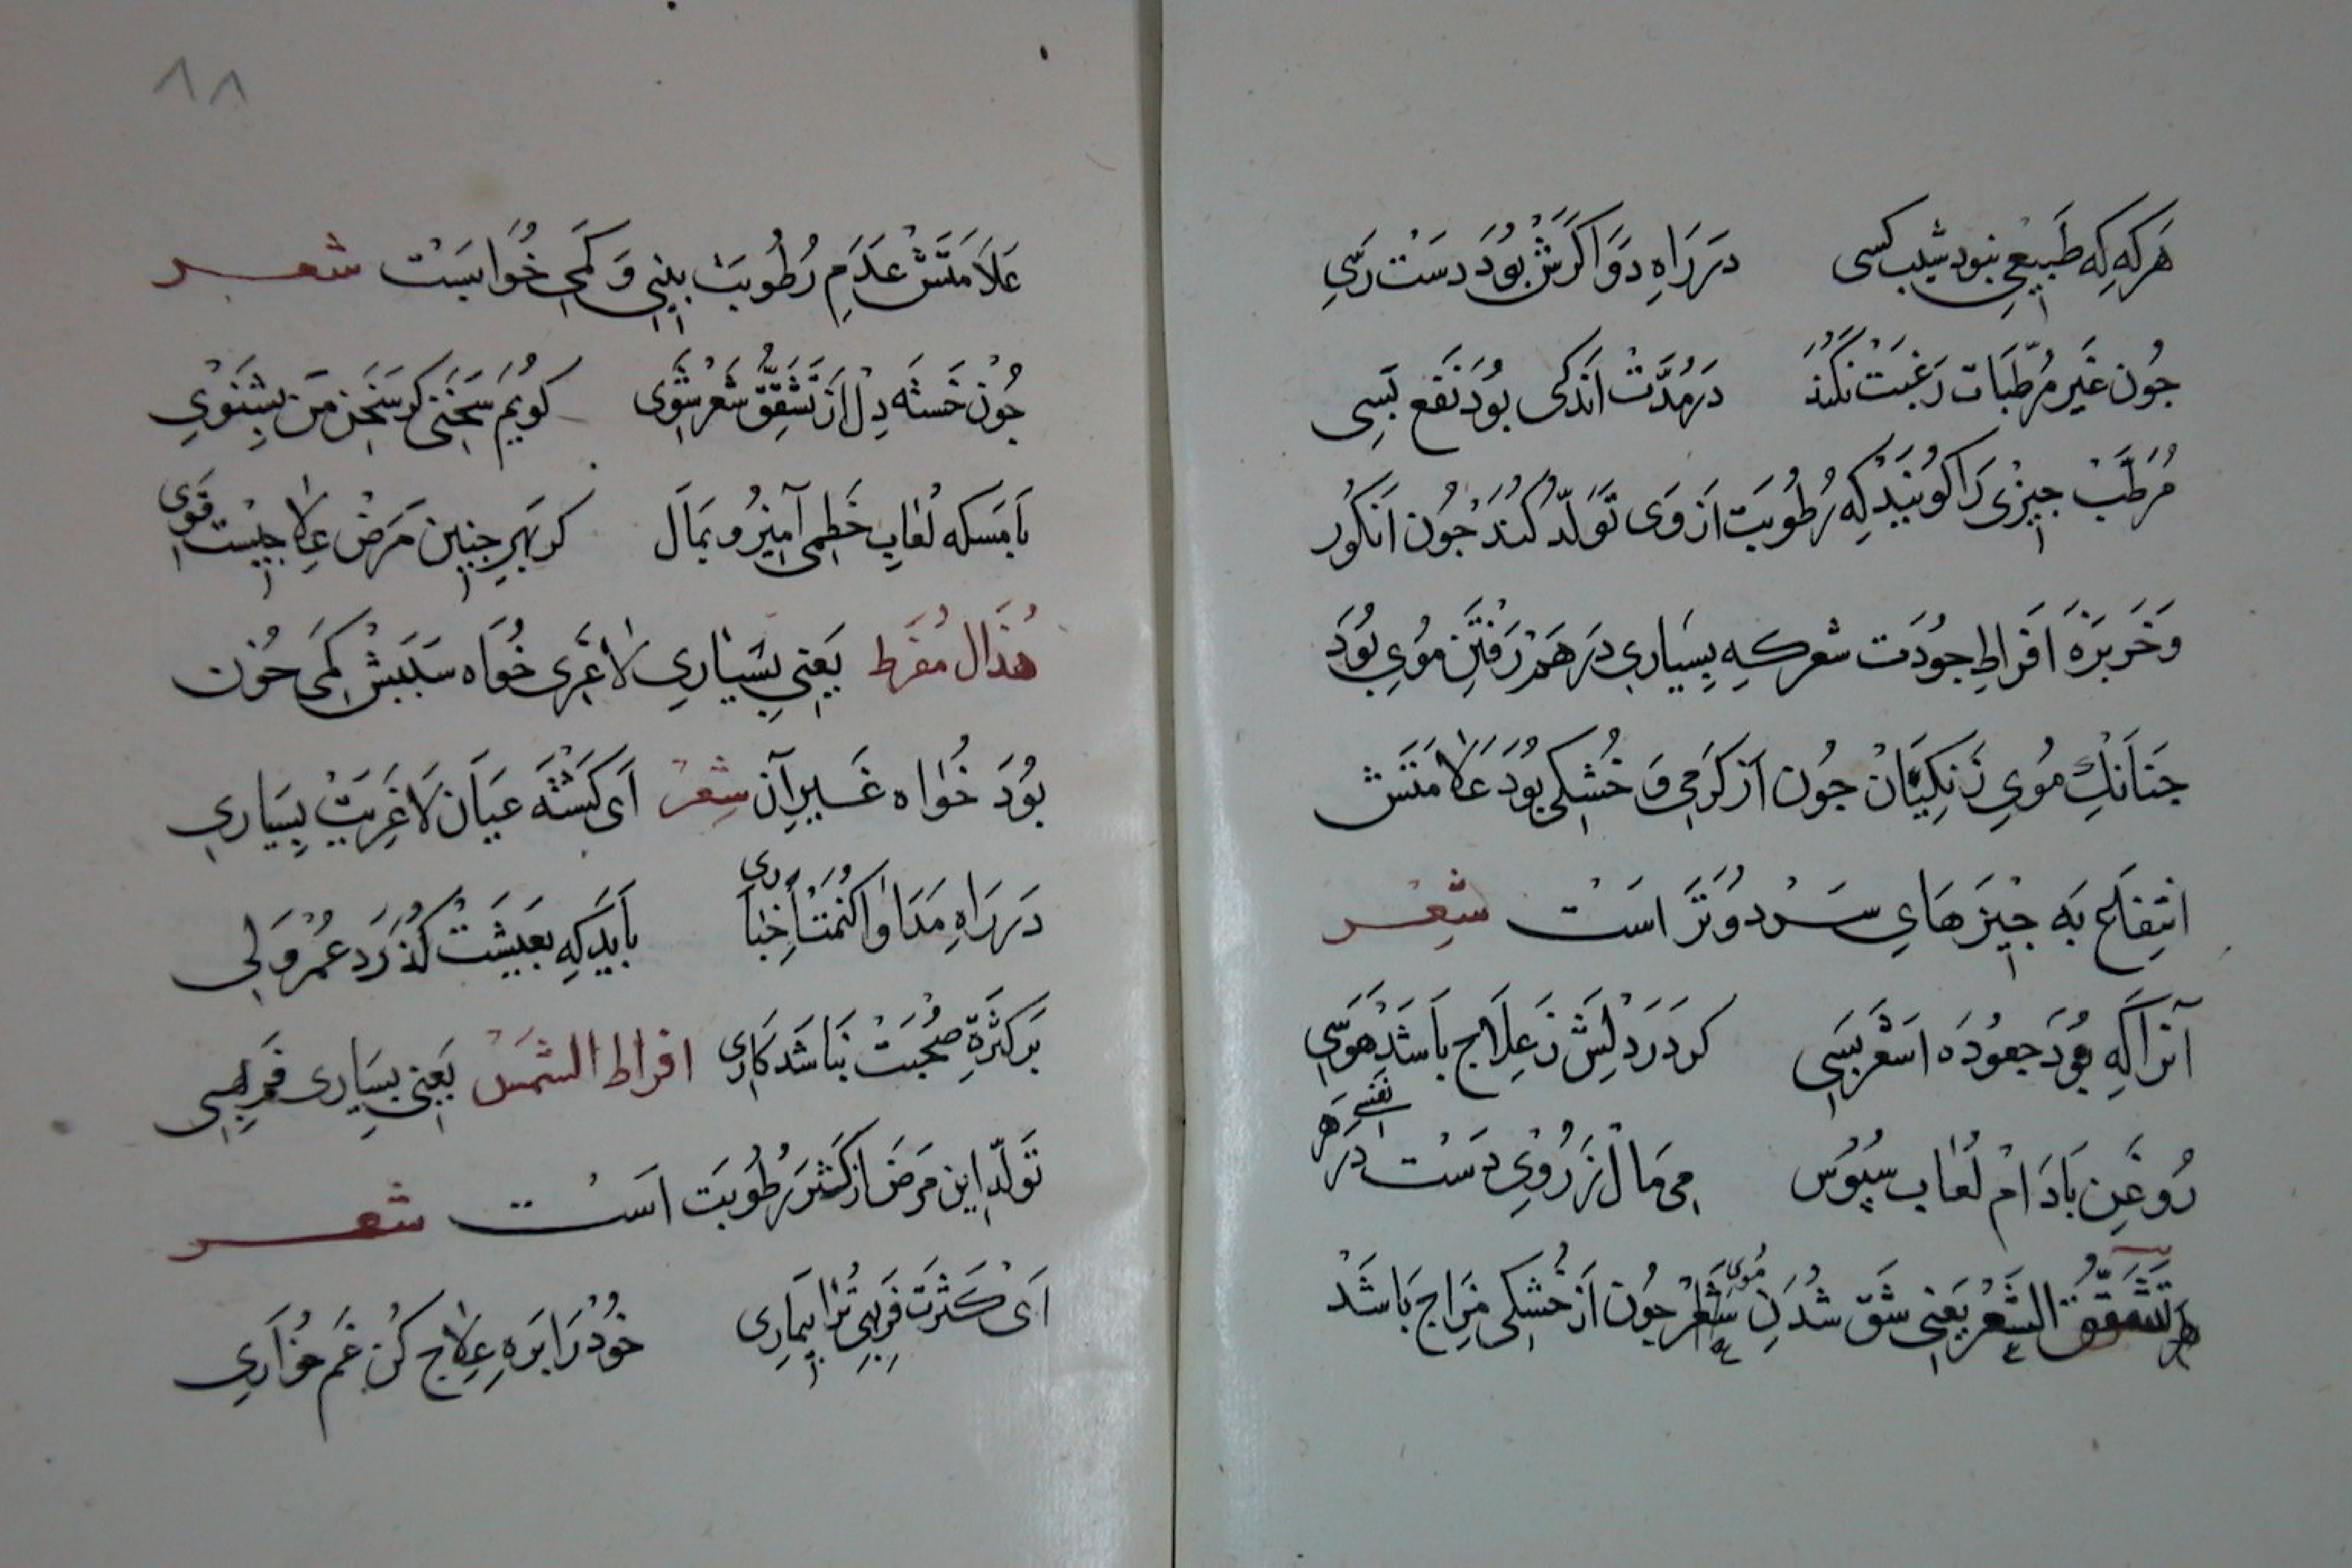 هَر كِه كِه طَبيعِي نبود شيب كسى دَر رَاهِ دَوَا كَرَشْ بُوَد دَسْت رَسِي
جُون غَيرِ مُرَطّبَات رَغبَتْ نَكُنَد دَر مُدَّتْ اَندَكى بُوَد نَفع بَسِى
مُرَطَّبْ جِيزى رَا كُويَنِدْ كِه رُطُوبَت اَز وَى تَوَلّدْ كُنَد جُون اَنكُور
وَخَربَزَهْ اَفرَاطِ جُودَت شعر كه بِسيَارِي دَرهَم رَفتَنِ مُوي بُوَد
جَنَانَكِ مُويِ زَنكِيَانْ جُون اَز كَرمِي وَ خُشكِى بُوَدْ عَلَامَتَش
انتِفَاع بَه جِيزهَاىِ سَرْد وُتَر اسَتْ شِعْر
آنرَا كِه بُوَد جعُودَه اَشعَر بَسِى كر دَر دِلَش زَ عِلَاج بَاشَد هَوَسِى
رُوغَنِ بَادَامْ لُعَاب سپُوس مِى مَال زَرُوىِ دَسْت دَر هَر نفسى
تَشَقُّقُ الشَّعْر يَعنِى شَقّ شُدَنِ مُوى شَعْر جُون اَز خُشكِى مِزَاج بَاشَدْ
٨٨
عَلَامَتَشْ عَدَمِ رُطُوبَتْ بِينِى وَ كَمِى خُوابَسْت شعر
جُونْ خَستَه دِلْ اَز تَشَقُّقِ شَعْر شَوِى كويم سَخَنى كر سَخَنِ مَن بِشنَوِي
بَا مَسكَه لُعَابِ خَطمِى آمِيز و بمَال كز بَهرِ جنِين مَرَضْ عِلَاجِيسْت قَوِى
هُذَال مُفرَط يَعنِي بِسيَارِي لَاغَرِى خُوَاه سَبَبَشْ كَمِىَ خُون
بُوَد خُوَاه غَيرِ آن شِعْر اَى كَشتَه عَيَان لَاغَرِيَتْ بِسيَارِي
دَر رَاهِ مَدَاوَا كُنَمَتْ اَخبَارى بَايَد كِه بعَيشَتْ كُذَرَد عُمْر وَلِى
بَر كَثرَةِ صُحبَتْ نبَاشَد كَارِى افراط الشمَن يَعنِى بِسيَارِى فَربِهِى
تَوَلّدِ اين مَرَضْ از كَثَر رُطُوبَت اَسْت شعر
اَى كَثرَتِ فَربِهِى تُرَا بِيمَارِى خُودْ رَا بَرَهِ عِلَاج كُن غَم خُوَارِي